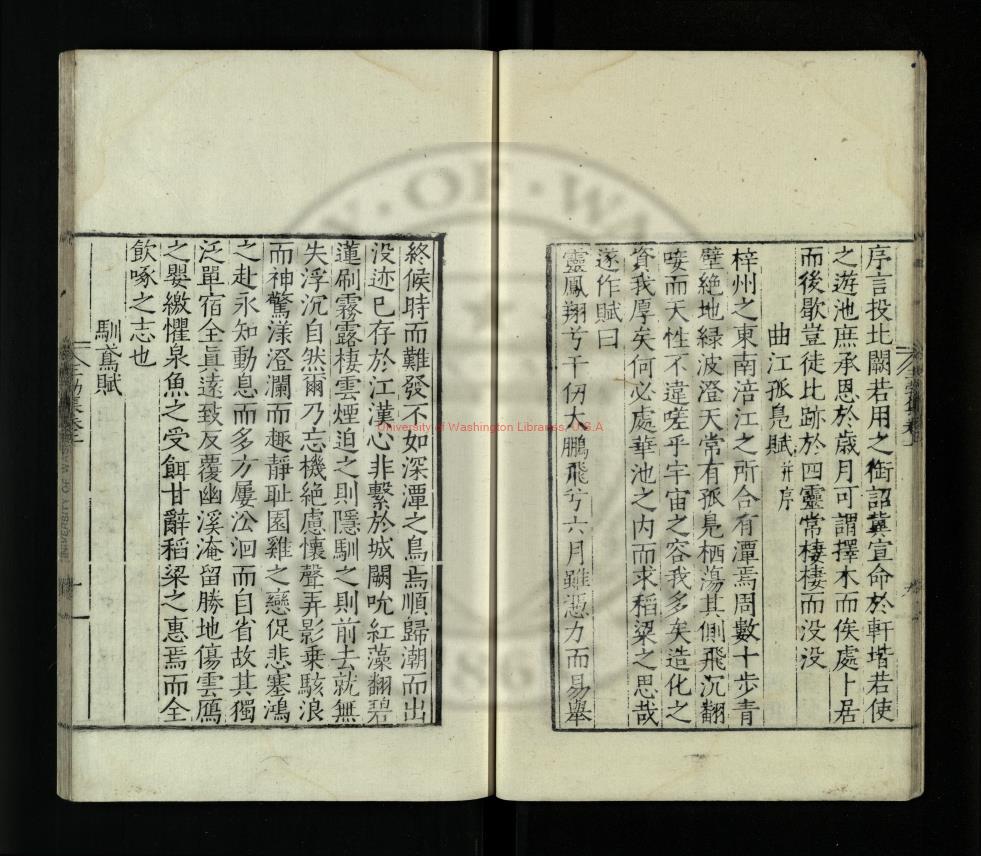 序言投北闕若用之銜詔冀宣命於軒堦若使
之遊池庶承恩於歲月可謂擇木而俟處卜居
而後歇豈徒比跡於四靈常棲棲而沒沒
曲江孤凫賦并序
梓州之東南涪江之所合有潭焉周數十步青
壁絶地緑波澄天常有孤凫栖蕩其側飛沉翻
唼而天性不違嗟乎宇宙之容我多矣造化之
資我厚矣何必處華池之内而求稻粱之思哉
遂作賦曰
靈鳳翔兮千仞大鵬飛兮六月雖憑力而易舉
終候時而難發不如深潭之鳥焉順歸潮而出
没迹已存於江漢心非繫於城闕吮紅藻翻碧
蓮刷霧露棲雲煙迫之則隱馴之則前去就無
失浮沉自然爾乃忘機絶慮懷聲弄影乗駭浪
而神驚漾澄瀾而趣靜耻園雞之戀促悲塞鴻
之赴永知動息而多方屢㳂洄而自省故其獨
泛單宿全真遠致反覆幽溪淹留勝地傷雲鴈
之嬰繳懼泉魚之受餌甘辭稻粱之惠焉而全
飲啄之志也
馴鳶賦
University of Washington Libraries, U.S.A